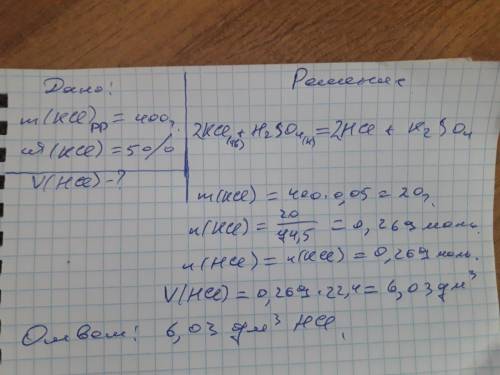 Дано:
m(KCl)рр = 400г.
ω(KCl) = 5%
V(HCl) - ?
Решение
2KCl(тв) + H2SO4(к) = 2HCl + K2SO4
m(KCl) = 400·0,05 = 20г.
n(KCl) = 20/74,5 = 0,269 моль.
n(HCl) = n(KCl) = 0,269 моль.
V(HCl) = 0,269·22,4 = 6,03 дм³
Ответ: 6,03 дм³ HCl.